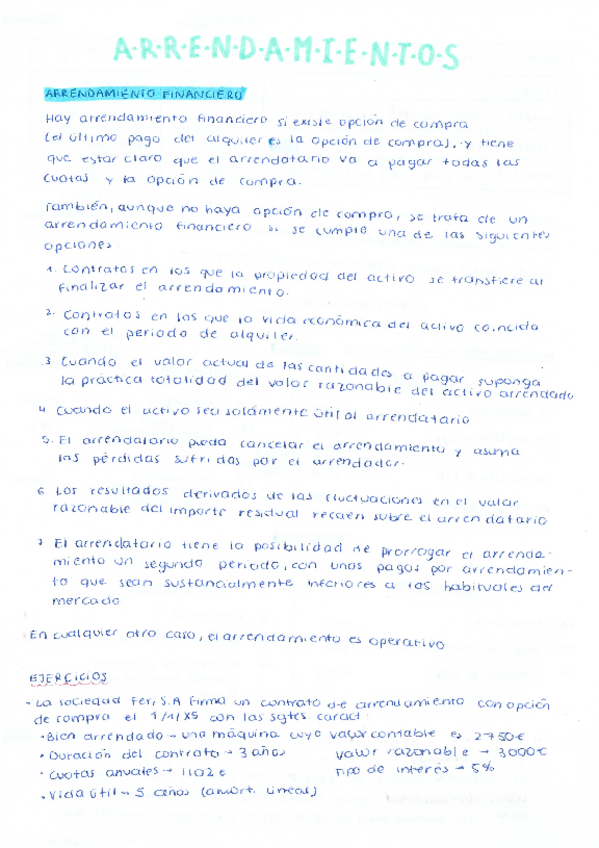 A·R·R·E·N·D·A·M·I·E·N·T·O·S
ARRENDAMIENTO FINANCIERO
Hay arrendamiento financiero si existe opción de compra
(el último pago del alquiler es la opción de compra), y tiene
que estar claro que el arrendatario va a pagar todas las
cuotas y la opción de compra.
También, aunque no haya opción de compra, se trata de un
arrendamiento financiero si se cumple una de las siguientes
opciones
1. Contratos en los que la propiedad del activo se transfiere al
finalizar el arrendamiento.
2. Contratos en los que la vida económica del activo coincida
con el periodo de alquiler.
3 Cuando el valor actual de las cantidades a pagar suponga
la práctica totalidad del valor razonable del activo arrendado
4 Cuando el activo sea solamente útil al arrendatario
5. El arrendatario pueda cancelar el arrendamiento y asuma
las pérdidas sufridas por el arrendador.
6 Los resultados derivados de las fluctuaciones en el valor
razonable del importe residual recaen sobre el arrendatario
7 El arrendatario tiene la posibilidad de prorrogar el arrenda-
miento un segundo periodo, con unos pagos por arrendamien-
to que sean sustancialmente inferiores a los habituales del
mercado
En cualquier otro caso, el arrendamiento es operativo
EJERCICIOS
- La sociedad Fer, S.A firma un contrato de arrendamiento con opción
de compra el 1/1/X5 con las sgtes caract.
· Bien arrendado → una máquina cuyo valor contable es 2750€
· Duración del contrato → 3 años valor razonable → 3000€
· Cuotas anuales → 1102€ Tipo de interés → 5%
· Vida útil → 5 años (amort. lineal)